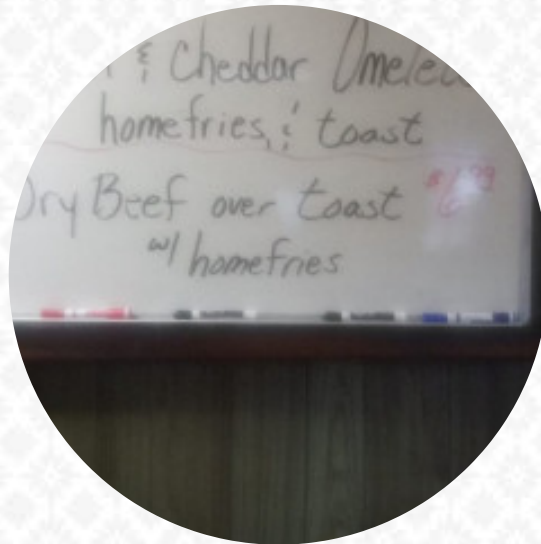 & Cheddar Omelet
homefries, & toast
Dry Beef over toast
w/ homefries